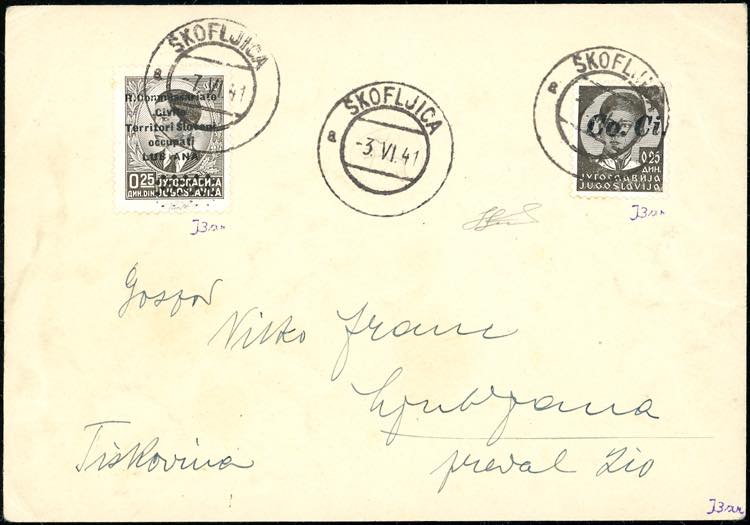 ŠKOFLJICA
a
-7.VI.41
R.Commissariato
Civile
Territori Sloveni
occupati
LUBIANA
0.25
ДИН. DIN.
ЈУГОСЛАВИЈА
JUGOSLAVIJA
ŠKOFLJICA
a
-3.VI.41
ŠKOFLJI
a
Co. Ci
0.25
ДИН.
ЈУГОСЛАВИЈА
JUGOSLAVIJA
Gospod
Vilko Franc
Ljubljana
Tiskovina
predal 210